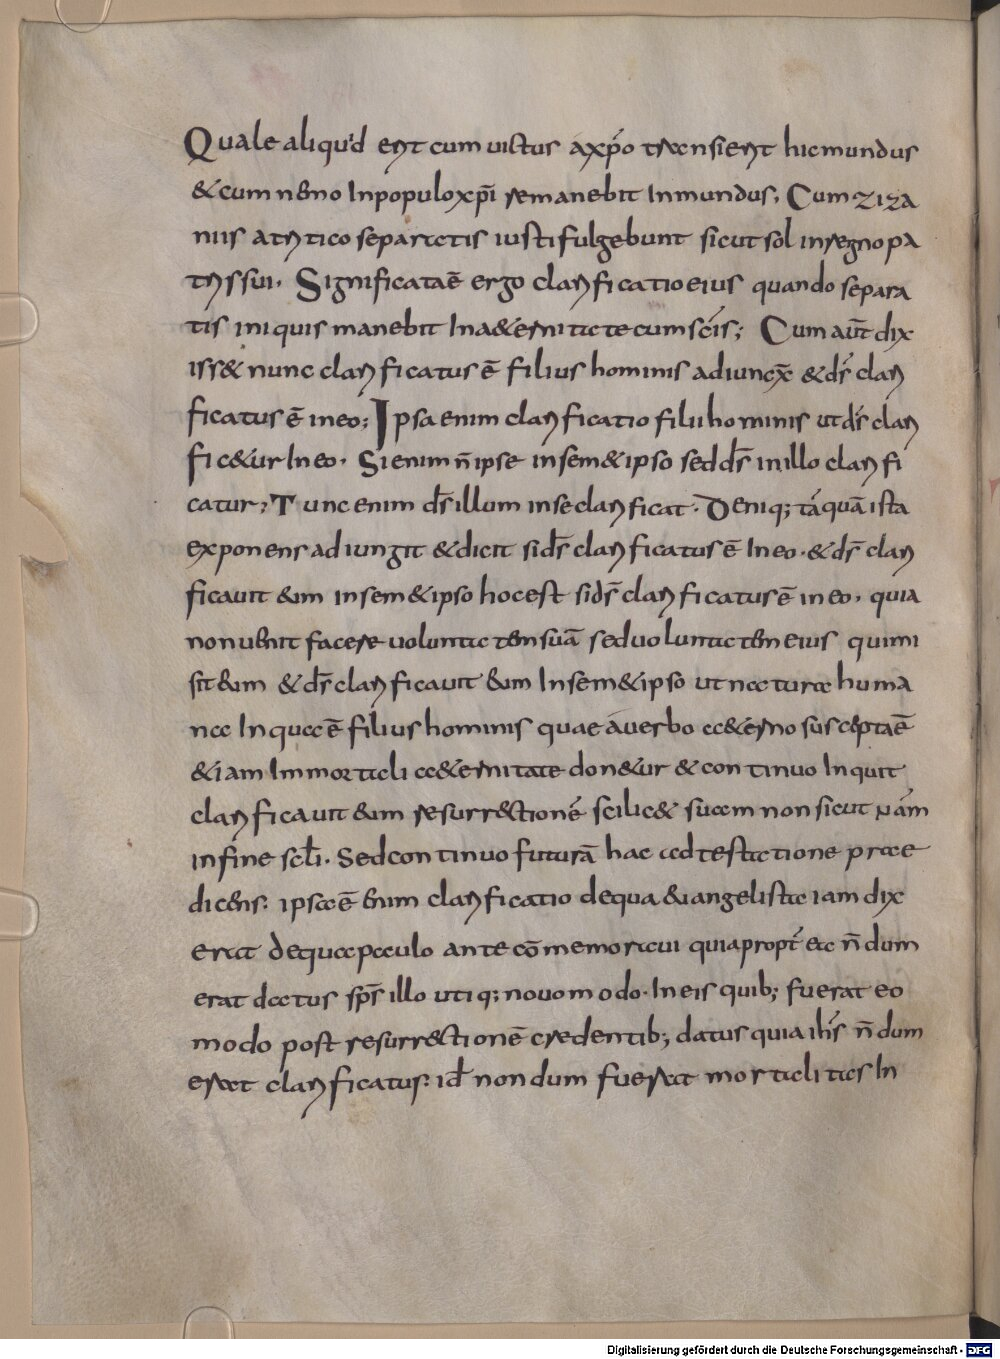 Quale aliquid erit cum uictus a xp̄o transierit hic mundus
& cum nemo In populo xp̄i remanebit Inmundus; Cum ziza
niis a tritico separatis iusti fulgebunt sicut sol in regno pa
tris sui. Significata ē ergo clarificatio eius quando separa
tis iniquis manebit In aeternitate cum sc̄is; Cum aut̄ dix
iss& nunc clarificatus ē filius hominis adiunx̄ & dī clari
ficatus ē in eo; Ipsa enim clarificatio filii hominis ut dī clari
fic&ur In eo. Si enim n̄ ipse in sem&ipso sed dī in illo clarifi
catur; Tunc enim dī illum in se clarificat. Deniq; tāquā ista
exponens adiungit & dicit si dī clarificatus ē In eo. & dī clari
ficauit eum in sem&ipso hoc est si dī clarificatus ē in eo. quia
non uenit facere uoluntatem suā sed uoluntatem eius qui mi
sit eum & dī clarificauit eum In sem&ipso ut natura huma
na In qua ē filius hominis quae a uerbo a&erno suscepta ē
&iam Immortali a&ernitate don&ur & continuo Inquit
clarificauit eum resurr&ctionē scilic& suam non sicut nr̄am
in fine scl̄i. Sed continuo futurā hac adtestatione prae
dicens. ipsa ē enim clarificatio de qua euangelista iam dix
erat de qua paulo ante cōmemoraui quia propt̄ ea n̄dum
erat datus sp̄s illo utiq; nouo modo. In eis quib; fuerat eo
modo post resurr&ctionē credentib; datus quia ih̄s n̄dum
erat clarificatus. id̄ nondum fuerat mortalitas In